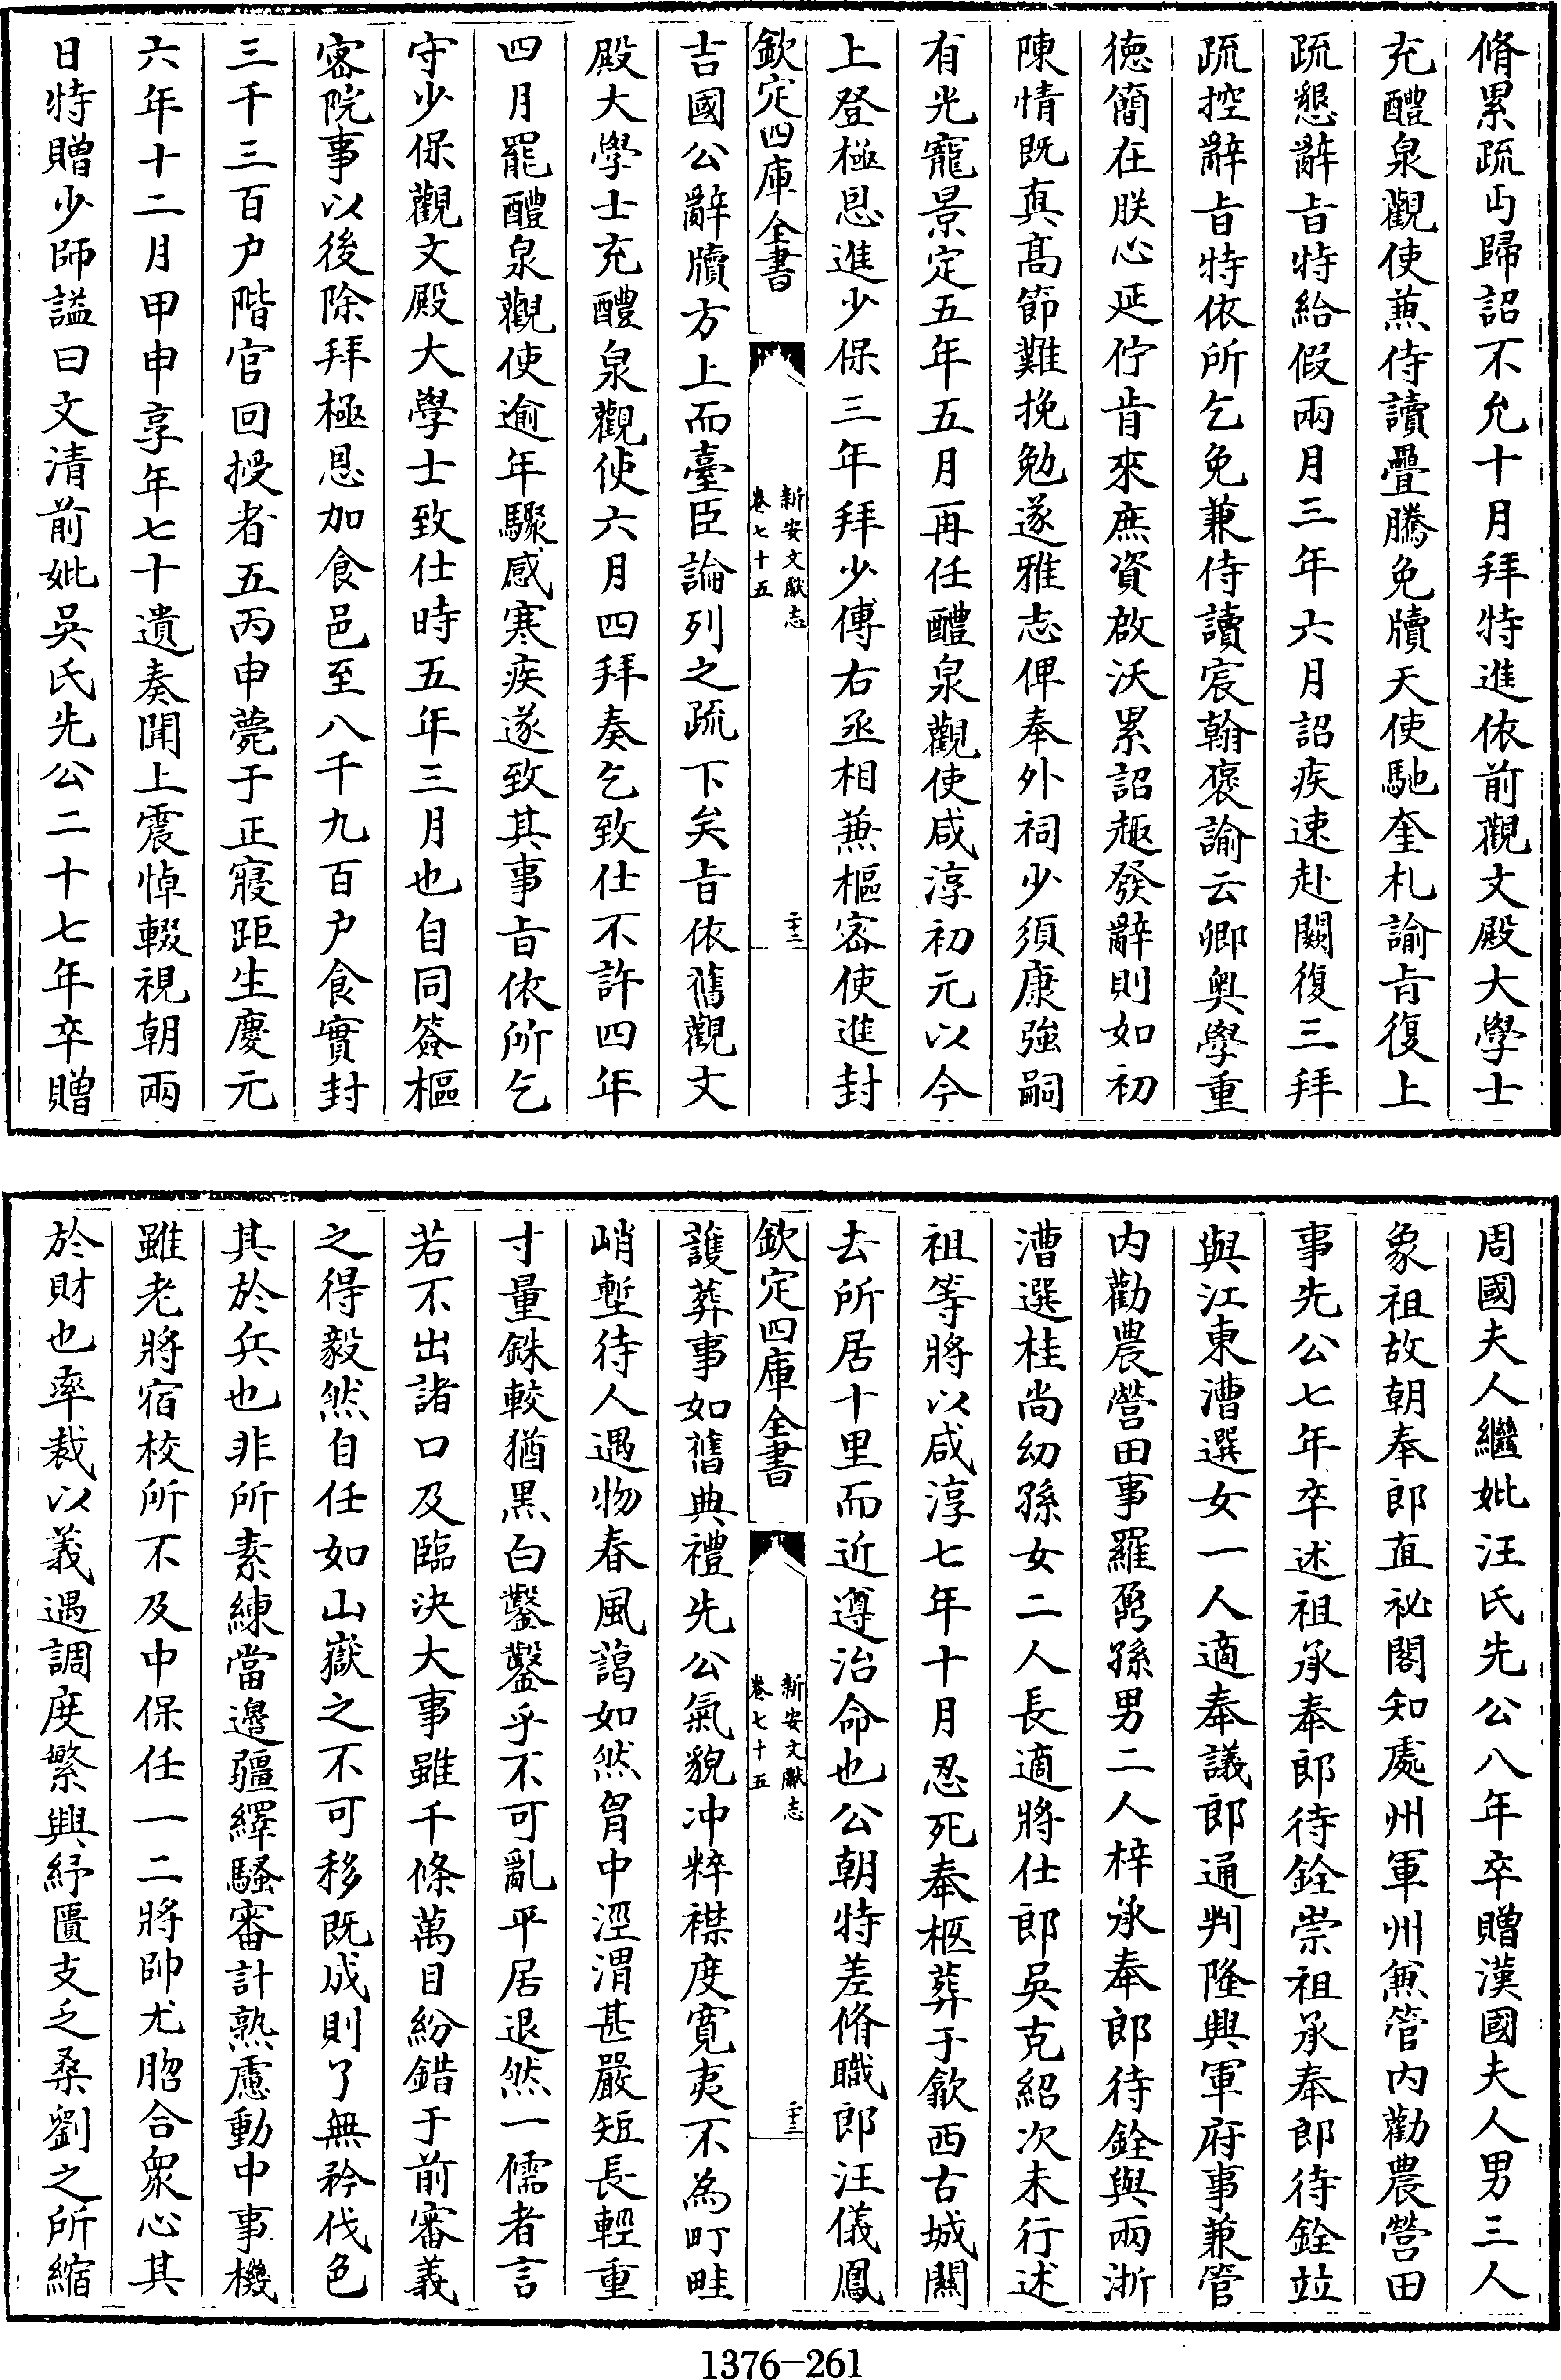 脩累疏丐歸詔不允十月拜特進依前觀文殿大學士
充醴泉觀使兼侍讀疊騰免牘天使馳奎札諭旨復上
疏懇辭旨特給假兩月三年六月詔疾速赴闕復三拜
疏控辭旨特依所乞免兼侍讀宸翰褒諭云卿奥學重
徳簡在朕心延佇肯來庶資啟沃累詔趣發辭則如初
陳情既真髙節難挽勉遂雅志俾奉外祠少須康強嗣
有光寵景定五年五月再任醴泉觀使咸淳初元以今
上登極恩進少保三年拜少傅右丞相兼樞密使進封
欽定四庫全書
新安文獻志
卷七十五
二十二
吉國公辭牘方上而臺臣論列之疏下矣旨依舊觀文
殿大學士充醴泉觀使六月四拜奏乞致仕不許四年
四月罷醴泉觀使逾年驟感寒疾遂致其事旨依所乞
守少保觀文殿大學士致仕時五年三月也自同簽樞
密院事以後除拜極恩加食邑至八千九百户食實封
三千三百户階官回授者五丙申薨于正寢距生慶元
六年十二月甲申享年七十遺奏聞上震悼輟視朝兩
日特贈少師諡曰文清前妣吳氏先公二十七年卒贈
周國夫人繼妣汪氏先公八年卒贈漢國夫人男三人
象祖故朝奉郎直祕閣知處州軍州兼管内勸農營田
事先公七年卒述祖承奉郎待銓崇祖承奉郎待銓竝
與江東漕選女一人適奉議郎通判隆興軍府事兼管
内勸農營田事羅鼐孫男二人梓承奉郎待銓與兩浙
漕選桂尚幼孫女二人長適將仕郎吳克紹次未行述
祖等將以咸淳七年十月忍死奉柩葬于歙西古城關
去所居十里而近遵治命也公朝特差脩職郎汪儀鳳
欽定四庫全書
新安文獻志
卷七十五
二十三
護葬事如舊典禮先公氣貌冲粹襟度寛夷不為町畦
峭塹待人遇物春風藹如然胷中涇渭甚嚴短長輕重
寸量銖較猶黒白鑿鑿乎不可亂平居退然一儒者言
若不出諸口及臨決大事雖千條萬目紛錯于前審義
之得毅然自任如山嶽之不可移既成則了無矜伐色
其於兵也非所素練當邊疆繹騷審計熟慮動中事機
雖老將宿校所不及中保任一二將帥尤脗合衆心其
於財也率裁以義遇調度繁興紓匱支乏桑劉之所縮
1376-261